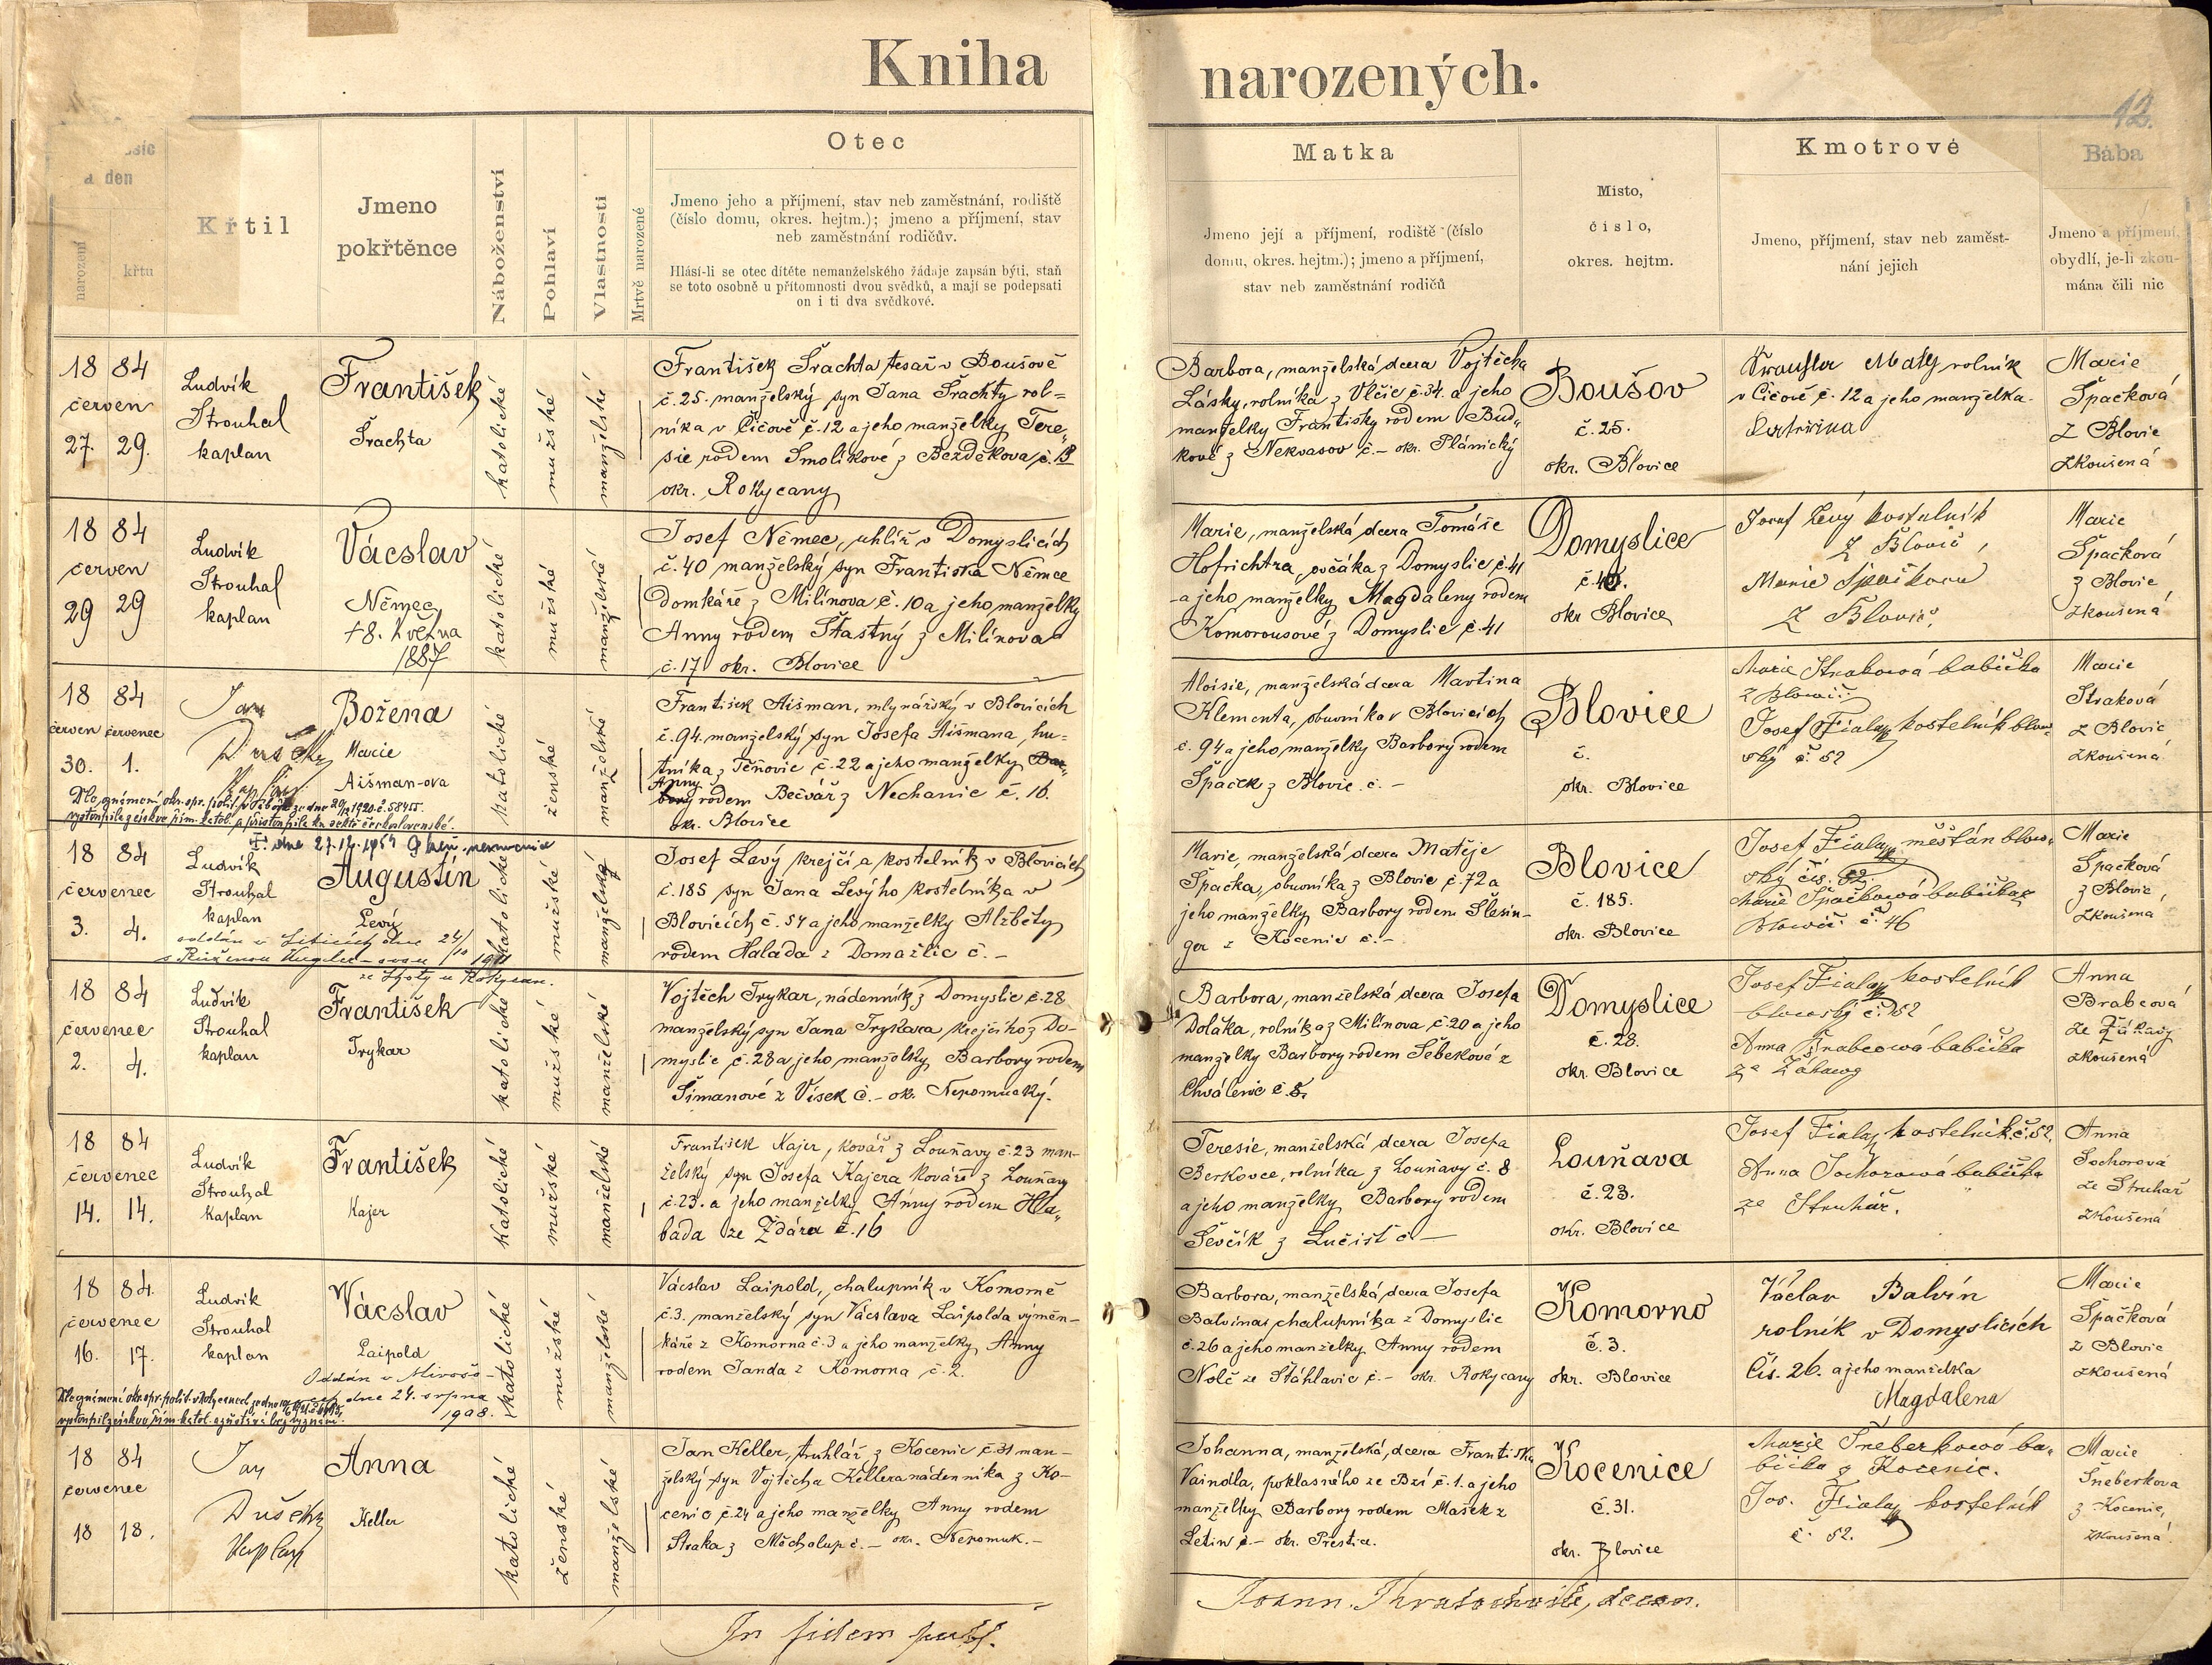 Kniha narozených.
12.
a den
narození
křtu
Křtil
Jmeno
pokřtěnce
Náboženství
Pohlaví
Vlastnosti
Mrtvě narozené
Otec
Jmeno jeho a příjmení, stav neb zaměstnání, rodiště
(číslo domu, okres. hejtm.); jmeno a příjmení, stav
neb zaměstnání rodičův.
Hlásí-li se otec dítěte nemanželského žádaje zapsán býti, staň
se toto osobně u přítomnosti dvou svědků, a mají se podepsati
on i ti dva svědkové.
Matka
Jmeno její a příjmení, rodiště (číslo
domu, okres. hejtm.); jmeno a příjmení,
stav neb zaměstnání rodičů
Misto,
číslo,
okres. hejtm.
Kmotrové
Jmeno, příjmení, stav neb zaměst-
nání jejich
Bába
Jmeno a příjmení,
obydlí, je-li zkou-
mána čili nic
18 84
červen
27. 29.
Ludvík
Strouhal
kaplan
František
Šrachta
katolické
mužské
manželské
František Šrachta tesař v Boušově
č. 25. manželský syn Jana Šrachty rol=
níka v Čičově č. 12 a jeho manželky Tere„
sie rodem Smolíkové z Bezděkova č. 13
okr. Rokycany
Barbora, manželská dcera Vojtěcha
Lásky, rolníka z Vlčic č. 34. a jeho
manželky Františky rodem Bud„
kové z Nekvasov č. – okr. Plánický
Boušov
č. 25.
okr. Blovice
Malý rolník
v Čičově č. 12 a jeho manželka
Kateřina
Marie
Špačková
z Blovic
zkoušená
18 84
červen
29 29
Ludvík
Strouhal
kaplan
Vácslav
Němec
+8. května
1887
katolické
mužské
manželské
Josef Němec, uhlíř v Domyslicích
č. 40 manželský syn Františka Němce
domkáře z Milínova č. 10 a jeho manželky
Anny rodem Šťastný z Milínova
č. 17 okr. Blovice
Marie, manželská dcera Tomáše
Hofrichtra, ovčáka z Domyslic č. 41
a jeho manželky Magdaleny rodem
Komorousové z Domyslic č. 41
Domyslice
č. 40.
okr Blovice
Josef Levý kostelník
z Blovic,
Marie Špačková
z Blovic.
Marie
Špačková
z Blovic
zkoušená
18 84
červen červenec
30. 1.
Jan
Dušek
kaplan
Božena
Marie
Aišman-ova
katolické
ženské
manželské
František Aišman, mlynářský v Blovicích
č. 94. manželský syn Josefa Aišmana, hu-
tníka z Těnovic č. 22 a jeho manželky Bar„
Anny
bory rodem Bečvář z Nechanic č. 16.
okr. Blovice
Aloisie, manželská dcera Martina
Klementa, obuvníka v Blovicích
č. 94 a jeho manželky Barbory rodem
Špaček z Blovic. č. –
Blovice
č.
okr. Blovice
Marie Straková babička
z Blovic
Josef Fiala, kostelník blov-
ský č. 52
Marie
Straková
z Blovic
zkoušená
18 84
červenec
3. 4.
Ludvík
Strouhal
kaplan
Augustin
Levý
oddán v Liticích dne 24/10 1911
ze Lhoty u Rokycan.
katolické
mužské
manželský
Josef Levý krejčí a kostelník v Blovicích
č. 185 syn Jana Levýho kostelníka v
Blovicích č. 54 a jeho manželky Alžběty
rodem Halada z Domažlic č. –
Marie, manželská dcera Matěje
Špačka, obuvníka z Blovic č. 72 a
jeho manželky Barbory rodem Šlesin-
ger z Kocenic č. –
Blovice
č. 185.
okr. Blovice
Josef Fiala, měšťan blov-
ský čís. 52.
Marie Špačková babička z
Blovic č. 46
Marie
Špačková
z Blovic,
zkoušená
18 84
červenec
2. 4.
Ludvík
Strouhal
kaplan
František
Trykar
katolické
mužské
manželské
Vojtěch Trykar, nádenník z Domyslic č. 28
manželský syn Jana Trykara krejčího z Do-
myslic č. 28 a jeho manželky Barbory rodem
Šimanové z Vísek č. – ok. Nepomucký.
Barbora, manželská dcera Josefa
Doláka, rolníka z Milínova č. 20 a jeho
manželky Barbory rodem Šebekové z
Chválenic č. 8.
Domyslice
č. 28.
okr. Blovice
Josef Fiala, kostelník
blovský č. 52
Anna Brabcová babička
ze Ždírce
Anna
Brabcová
zkoušená
18 84
červenec
14. 14.
Ludvík
Strouhal
kaplan
František
Kajer
katolické
mužské
manželské
František Kajer, kovář z Louňavy č. 23 man-
želský syn Josefa Kajera kováře z Louňavy
č. 23. a jeho manželky Anny rodem Hla„
bada ze Ždára č. 16
Teresie, manželská dcera Josefa
Berkovce, rolníka z Louňavy č. 8
a jeho manželky Barbory rodem
Ševčík z Lučišť č –
Louňava
č. 23.
okr. Blovice
Josef Fiala, kostelník č. 52.
Anna Sochorová babička
ze Struhař.
Anna
Sochorová
ze Struhař
zkoušená
18 84.
červenec
16. 17.
Ludvík
Strouhal
kaplan
Vácslav
Laipold
Oddán v Mirošo-
vech dne 24. srpna
1908.
katolické
mužské
manželské
Vácslav Laipold, chalupník v Komorně
č. 3. manželský syn Vácslava Laipolda výměn-
káře z Komorna č. 3 a jeho manželky Anny
rodem Janda z Komorna č. 2.
Barbora, manželská dcera Josefa
Balvína, chalupníka z Domyslic
č. 26 a jeho manželky Anny rodem
Nolč ze Štáhlavic č. – okr. Rokycany
Komorno
č. 3.
okr. Blovice
Václav Balvín
rolník v Domyslicích
Čís. 26. a jeho manželka
Magdalena
Marie
Špačková
z Blovic
zkoušená
18 84
červenec
18 18.
Jan
Dušek
kaplan
Anna
Keller
katolické
ženské
manželské
Jan Keller, truhlář z Kocenic č. 31 man-
želský syn Vojtěcha Kellera nádenníka z Ko-
cenic č. 24 a jeho manželky Anny rodem
Straka z Měcholup č. – okr. Nepomuk. –
Johanna, manželská, dcera Františka
Vaindla, poklasného ze Bzí č. 1. a jeho
manželky Barbory rodem Mašek z
Letin č. – okr. Přestice.
Kocenice
č. 31.
okr. Blovice
Marie Šneberková ba-
bička z Kocenic.
Jos. Fiala, kostelník
č. 52.
Marie
Šneberkova
z Kocenic,
zkoušená
In fidem publ.